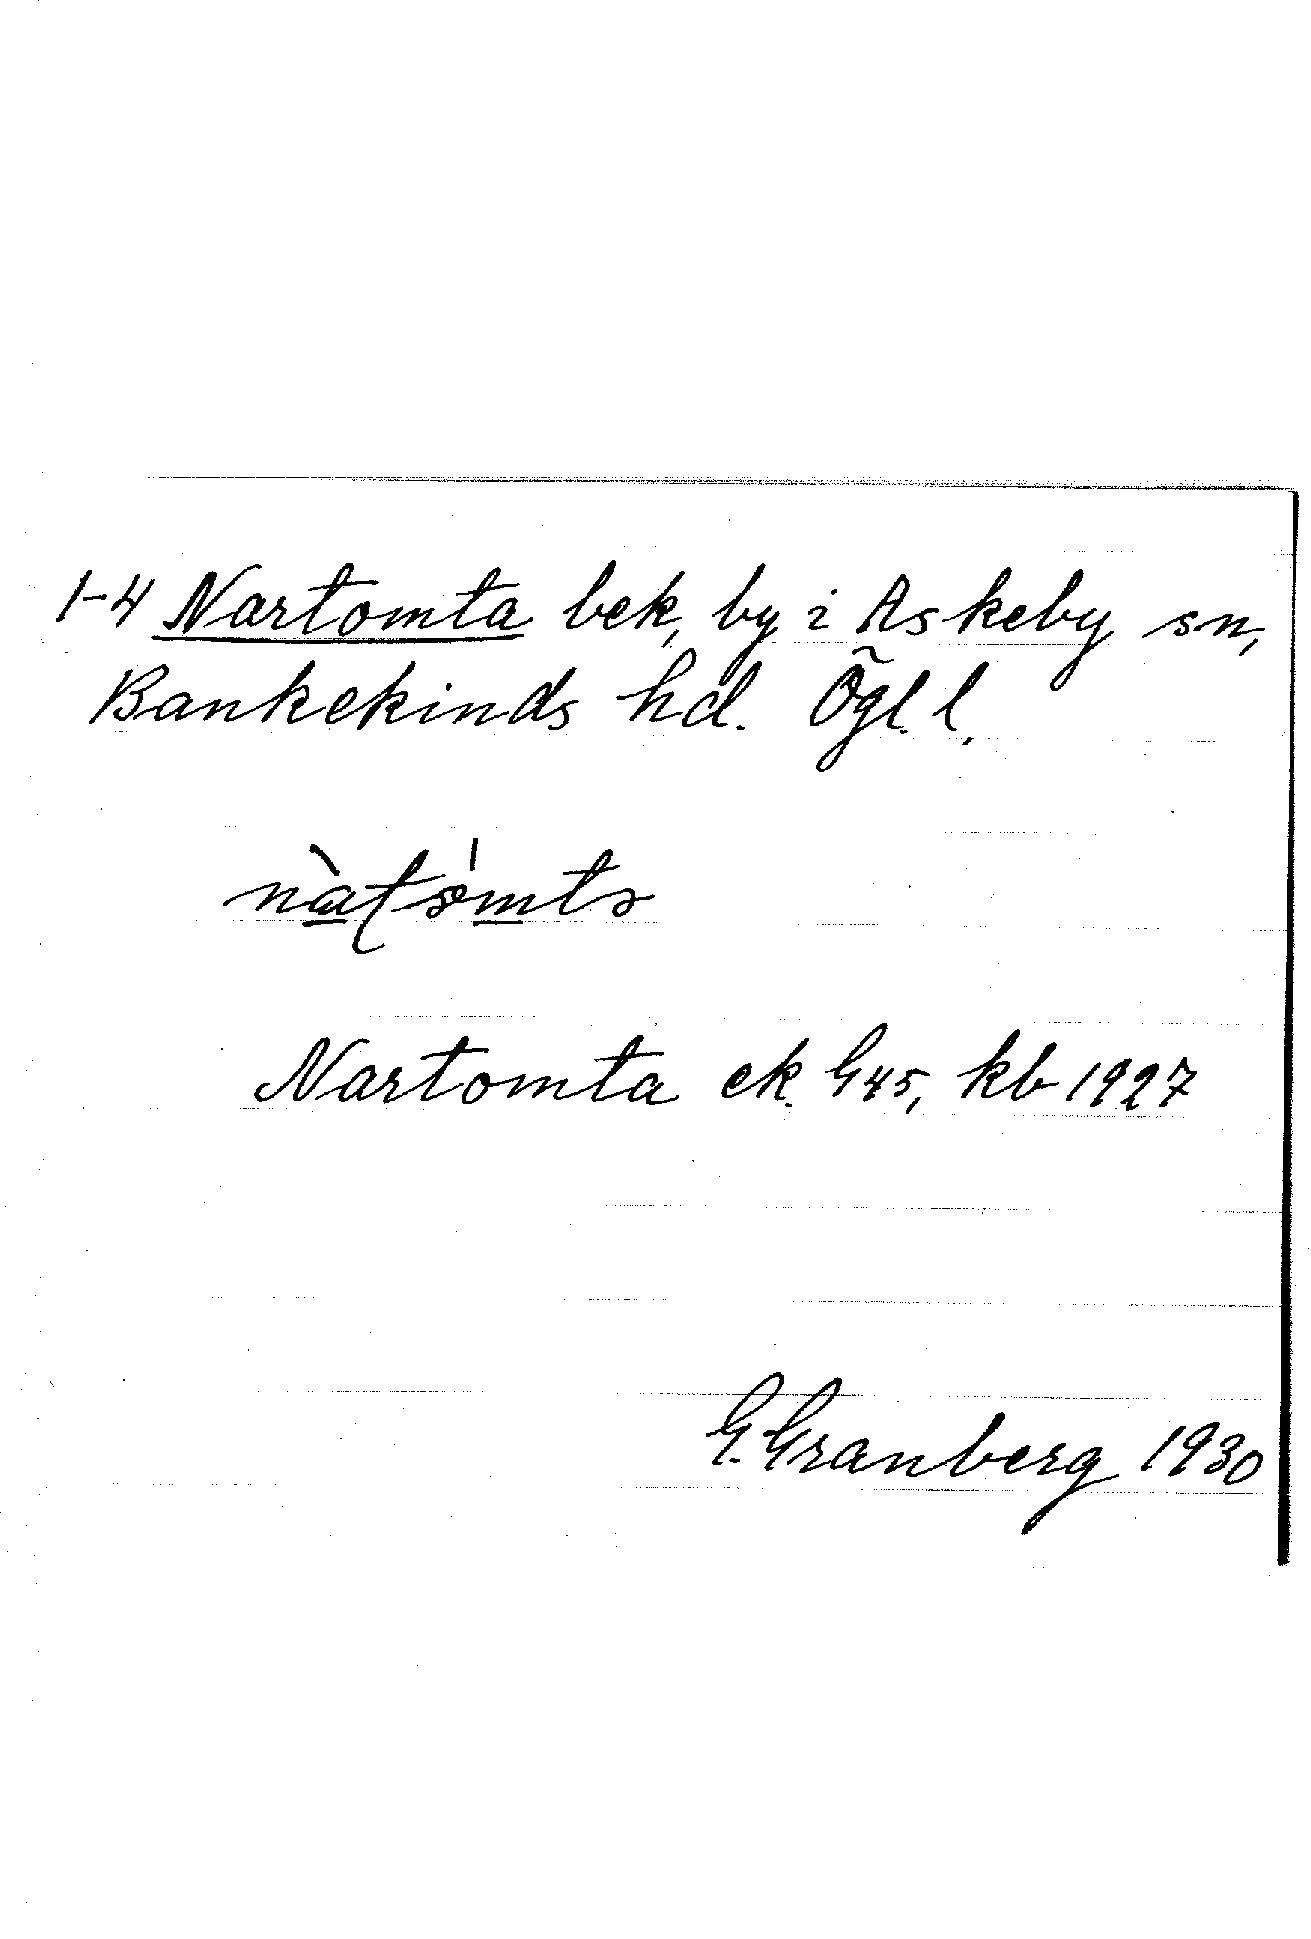 1-4 Nartomta bek, by i Askeby sn,
Bankekinds hd. Ögl. l.
Nartomta ek. G45, kb 1927
G. Granberg 1930